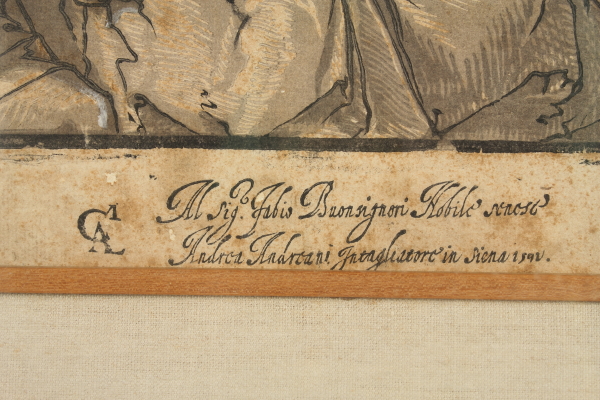 Al sig.º Fabio Buonsignori Nobile senese
Andrea Andreani Intagliatore in siena 1592.